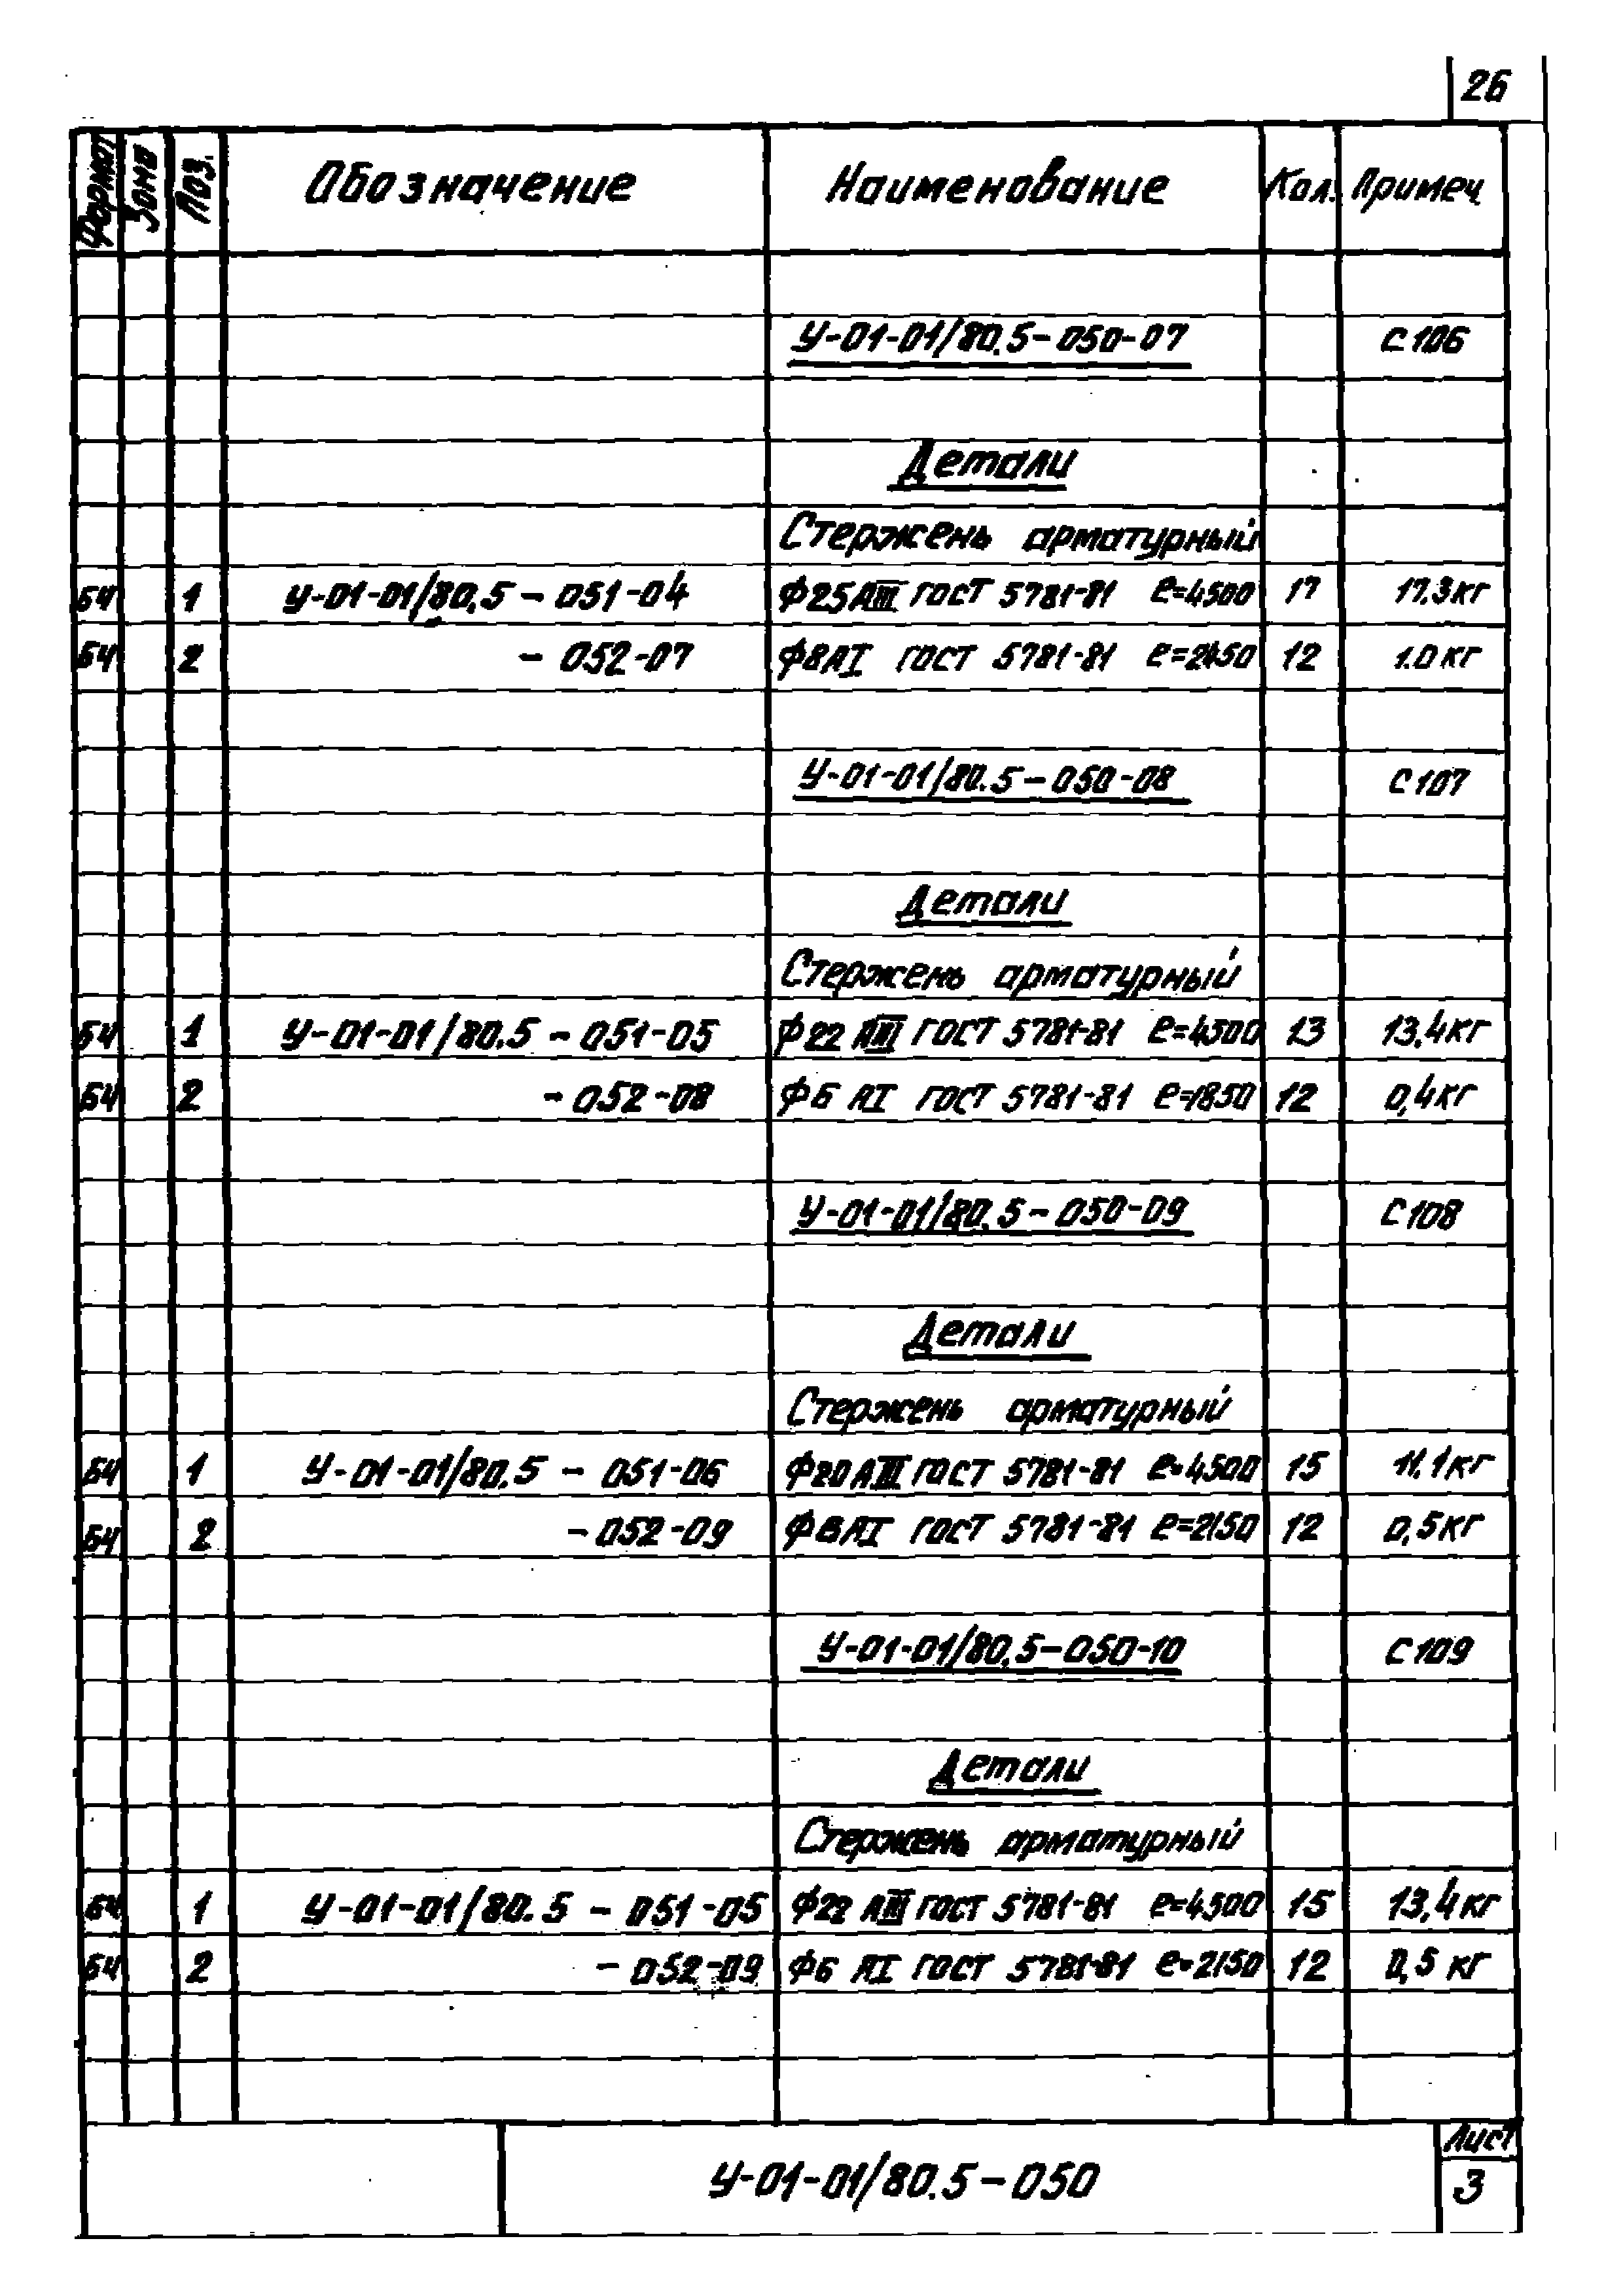 26
Формат Зона Поз. Обозначение Наименование Кол. Примеч.
У-01-01/80.5-050-07 С106
Детали
Стержень арматурный
БЧ 1 У-01-01/80.5-051-04 Ф25АIII ГОСТ 5781-81 е=4500 17 17.3кг
БЧ 2 -052-07 Ф8АI ГОСТ 5781-81 е=2450 12 1.0кг
У-01-01/80.5-050-08 С107
Детали
Стержень арматурный
БЧ 1 У-01-01/80.5-051-05 Ф22 АIII ГОСТ 5781-81 е=4500 13 13.4кг
БЧ 2 -052-08 Ф6 АI ГОСТ 5781-81 е=1850 12 0,4кг
У-01-01/80.5-050-09 С108
Детали
Стержень арматурный
БЧ 1 У-01-01/80.5-051-06 Ф20АIII ГОСТ 5781-81 е=4500 15 11.1кг
БЧ 2 -052-09 Ф6АI ГОСТ 5781-81 е=2150 12 0,5кг
У-01-01/80.5-050-10 С109
Детали
Стержень арматурный
БЧ 1 У-01-01/80.5-051-05 Ф22 АIII ГОСТ 5781-81 е=4500 15 13,4кг
БЧ 2 -052-09 Ф6 АI ГОСТ 5781-81 е=2150 12 0,5 кг
У-01-01/80.5-050
Лист
3